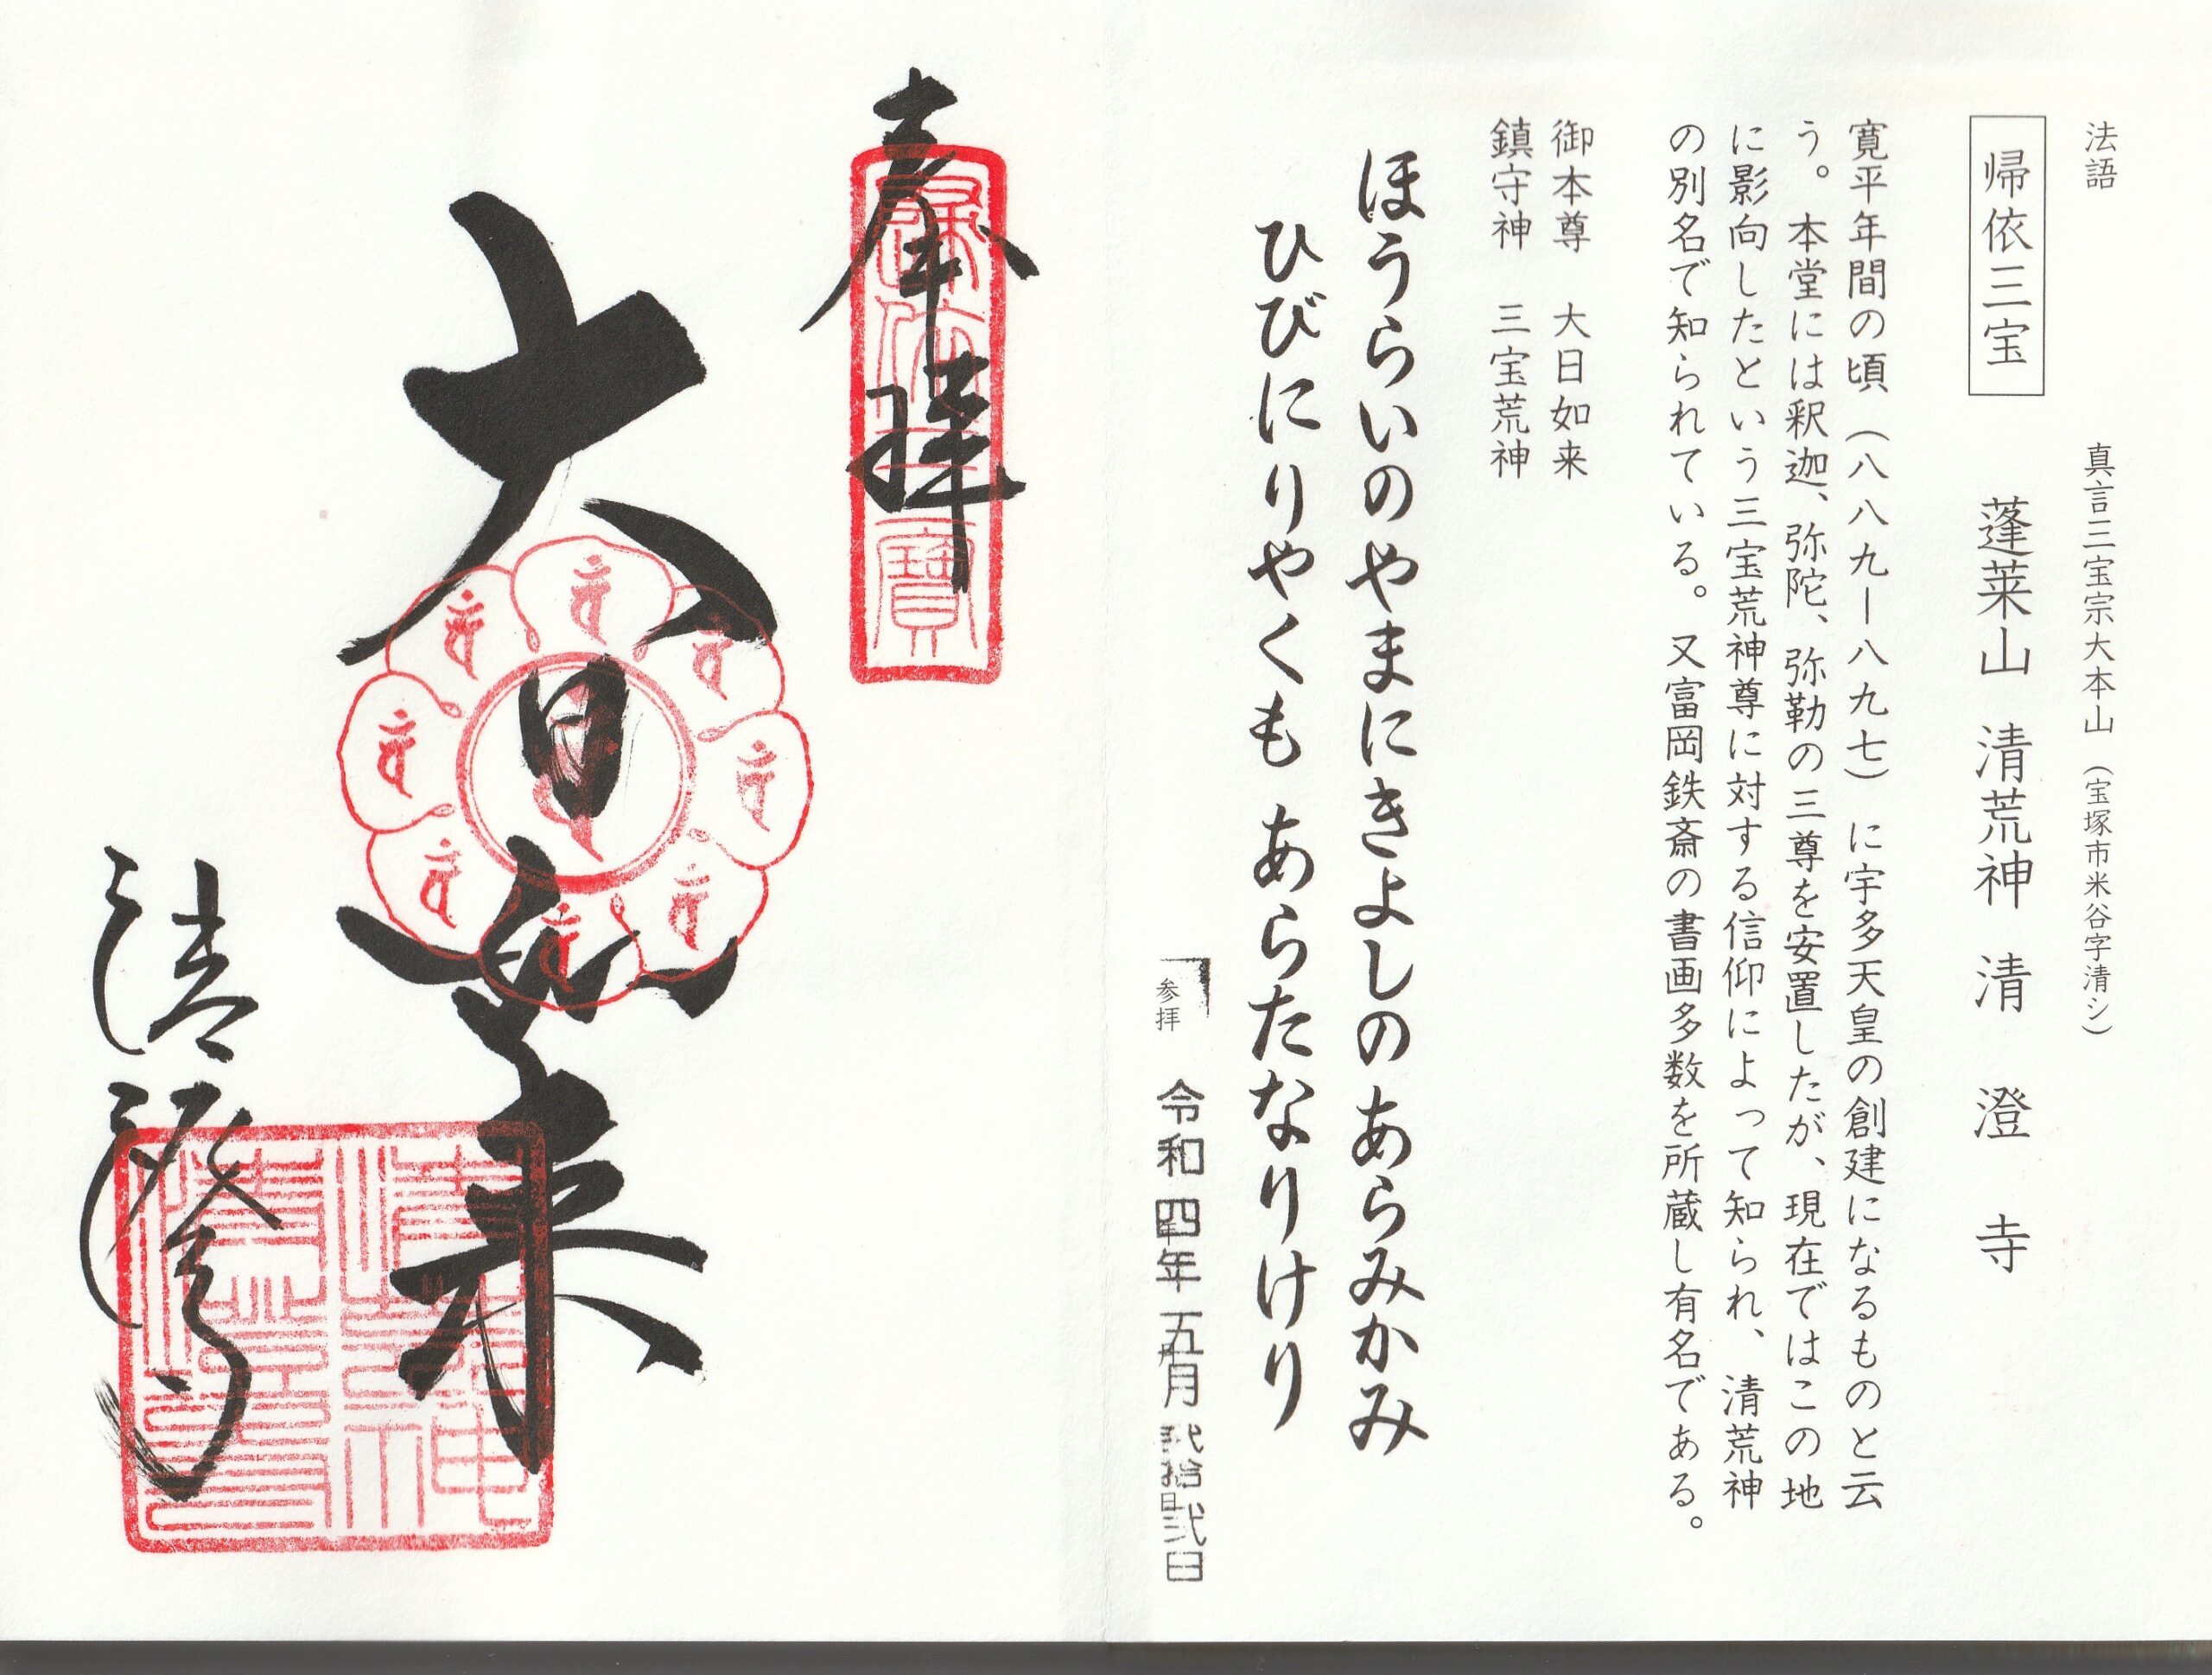 法語
帰依三宝
真言三宝宗大本山（宝塚市米谷字清シ）
蓬莱山 清荒神 清澄寺
寛平年間の頃（八八九―八九七）に宇多天皇の創建になるものと云
う。本堂には釈迦、弥陀、弥勒の三尊を安置したが、現在ではこの地
に影向したという三宝荒神尊に対する信仰によって知られ、清荒神
の別名で知られている。又富岡鉄斎の書画多数を所蔵し有名である。
御本尊 大日如来
鎮守神 三宝荒神
ほうらいのやまにきよしのあらみかみ
ひびにりやくも あらたなりけり
参拝 令和四年五月弐拾弐日
奉拝
歸依三寶
大日如来
清澄寺
清荒神清澄寺